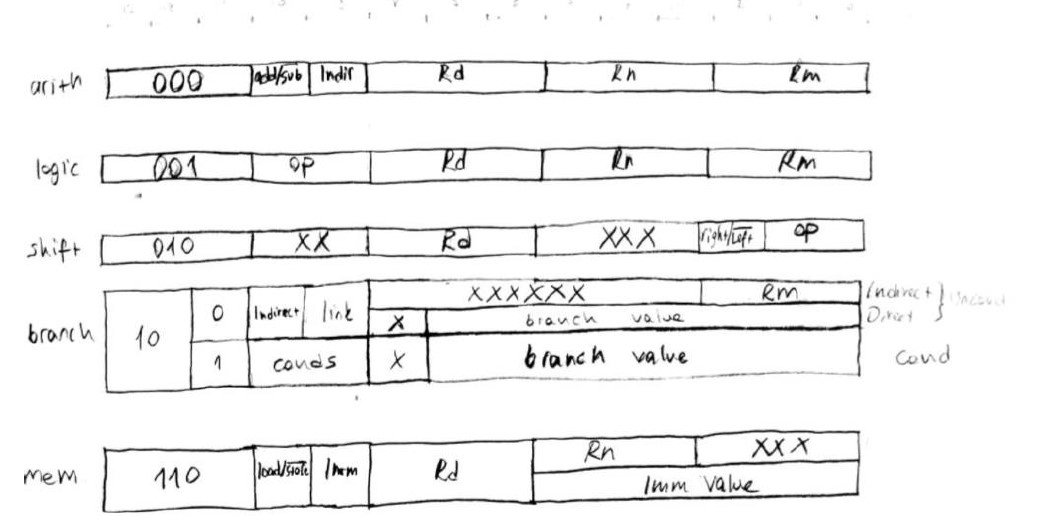 arith 000 add/sub Indir Rd Rn Rm
logic 001 op Rd Rn Rm
shift 010 XX Rd XXX right/Left op
branch 10 0 Indirect link XXXXXX Rm Indirect
X branch value Direct
1 conds X branch value cond
mem 110 load/store Imm Rd Rn XXX
Imm value